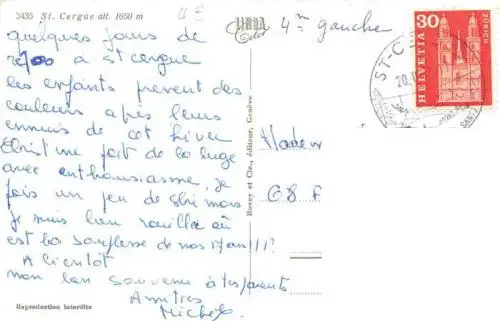 3435 St. Cergue alt. 1050 m
4 €
LIBRA
Color
4ème gauche
quelques jours de
repos a st cergue
les enfants prevent des
couleurs après leurs
ennuis de cet hiver
Christine fait de la luge
avec enthousiasme, je
fais un peu de ski mais
je suis bien rouillée où
est la souplesse de nos 17 ans !!!?
A bientôt
mon bon souvenir à tes parents
Amitiés
Michel
Reproduction interdite
Bovey et Cie., éditeur, Genève
Madem
68 F
30
HELVETIA
ZÜRICH
ST-C
20.